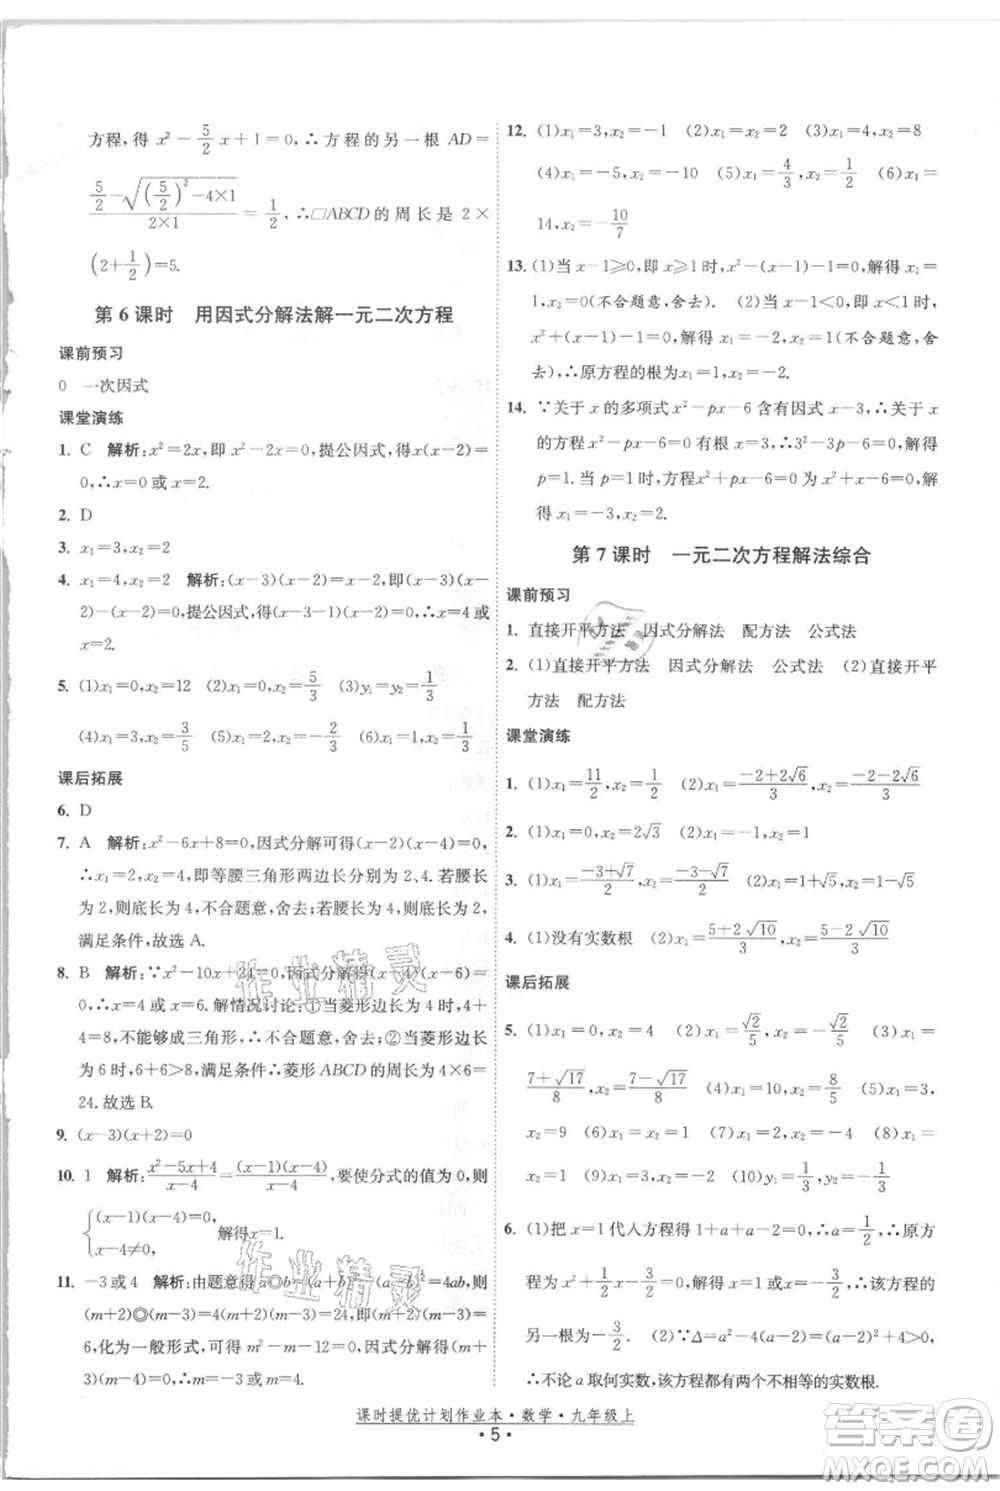 方程,得 x²-5/2x+1=0,∴方程的另一根 AD=
(5/2-√((5/2)²-4×1))/(2×1)=1/2,∴□ABCD的周长是 2×
(2+1/2)=5.
第6课时 用因式分解法解一元二次方程
课前预习
0 一次因式
课堂演练
1. C 解析:x²=2x,即 x²-2x=0,提公因式,得 x(x-2)=
0,∴x=0 或 x=2.
2. D
3. x₁=3,x₂=2
4. x₁=4,x₂=2 解析:(x-3)(x-3)=x-3,即(x-3)(x-
3)-(x-3)=0,提公因式,得(x-3-1)(x-2)=0,∴x=4或
x=2.
5. (1)x₁=0,x₂=12 (2)x₁=x₂=5/3 (3)y₁=y₂=1/3
(4)x₁=x₂=3/5 (5)x₁=0,x₂=-2/3 (6)x₁=1,x₂=3
课后拓展
6. D
7. A 解析:x²-6x+8=0,因式分解可得(x-2)(x-4)=0,
∴x₁=2,x₂=4,即等腰三角形两边长分别为 2、4.若腰长
为2,则底长为4,不合题意,舍去;若腰长为4,则底长为2,
满足条件,故选 A.
8. B 解析:∵x²-10x+24=0,因式分解得(x-4)(x-6)=
0,∴x₁=4,x₂=6.解情况讨论:①当菱形边长为4时,4+
4=8,不能够成三角形,不合题意,舍去;②当菱形边长为
6时,6+6>8,满足条件,∴菱形ABCD的周长为4×6=
24.故选 B.
9. (x-3)(x+2)=0
10. 1 解析:(x²-5x+4)/(x-4)=(x-1)(x-4)/(x-4),要使分式的值为0,则
{(x-1)(x-4)=0,
x-4≠0, 解得x=1.
11. -3或4 解析:由题意得 a◎b=(a+b)²-(a-b)²=4ab,则
(m+2)◎(m-3)=4(m+2)(m-3)=24,即(m+2)(m-3)=
6,化为一般形式,可得 m²-m-12=0,因式分解得(m-4)·
(m+3)=0,∴m=4或m=-3.
12. (1)x₁=3,x₂=-1 (2)x₁=x₂=3 (3)x₁=4,x₂=8
(4)x₁=5,x₂=-10 (5)x₁=4/3,x₂=1/4 (6)x₁=
14,x₂=-10/7
13. (1)当 x-1≥0,即 x≥1时,x²-(x-1)-1=0,解得 x₁=
1,x₂=0(不合题意,舍去).当 x-1<0,即 x<1时,
x²+(x-1)-1=0,解得 x₁=-2,x₂=1(不合题意,
舍去),∴原方程的根为x₁=1,x₂=-2.
14. ∵关于 x 的多项式 x²-px-6 含有因式 x-3,∴关于 x
的方程 x²-px-6=0 有根 x=3,∴3²-3p-6=0,解得
p=1.当 p=1时,x²-px-6=0,即 x²+x-6=0,解
得 x₁=-3,x₂=2.
第7课时 一元二次方程解法综合
课前预习
1. 直接开平方法 因式分解法 配方法 公式法
2. (1)直接开平方法 因式分解法 公式法 (2)直接开平
方法 配方法
课堂演练
1. (1)x₁=11/2,x₂=1/2 (2)x₁=(-2+2√6)/3,x₂=(-2-2√6)/3
2. (1)x₁=0,x₂=2√3 (2)x₁=-2,x₂=1
3. (1)x₁=(-3+√7)/2,x₂=(-3-√7)/2 (2)x₁=1+√5,x₂=1-√5
4. (1)没有实数根 (2)x₁=(5+2√10)/3,x₂=(5-2√10)/3
课后拓展
5. (1)x₁=0,x₂=4 (2)x₁=√2/5,x₂=-√2/5 (3)x₁=
(7+√17)/8,x₂=(7-√17)/8 (4)x₁=10,x₂=8/5 (5)x₁=
1,x₂=9 (6)x₁=1,x₂=2 (7)x₁=2,x₂=4 (8)x₁=
-9,x₂=2 (9)x₁=-2,x₂=1/3 (10)y₁=1/3,y₂=3
6. (1)把 x=1 代入方程得 1+a+a-2=0,∴a=1/2,∴原方
程为 x²+1/2x-3/2=0,解得 x₁=1,x₂=-3/2,∴该方程的
另一根为-3/2. (2)∵Δ=a²-4(a-2)=(a-2)²+4>0,
∴不论 a 取何实数,该方程都有两个不相等的实数根.
课时提优计划作业本·数学·九年级上
·5·
作业精灵
作业精灵
作业精灵
MXQE.COM